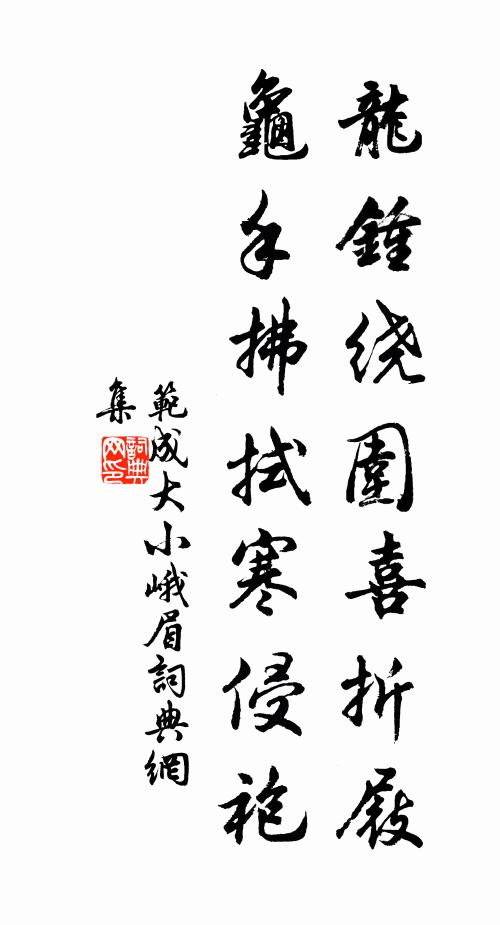 龍鍾绕圍喜折屐
龜手拂拭寒侵袍
範成大小峨眉詞典網
集
詞典
网印